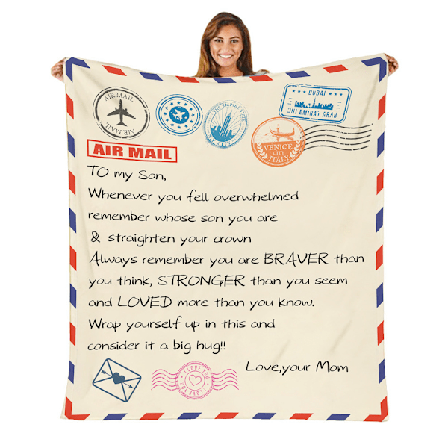 AIRMAIL
AIRMAIL
DUBAI
VENICE
ITALY
AIR MAIL
TO my Son,
Whenever you fell overwhelmed
remember whose son you are
& straighten your crown
Always remember you are BRAVER than
you think, STRONGER than you seem
and LOVED more than you know.
Wrap yourself up in this and
consider it a big hug!!
Love,your Mom